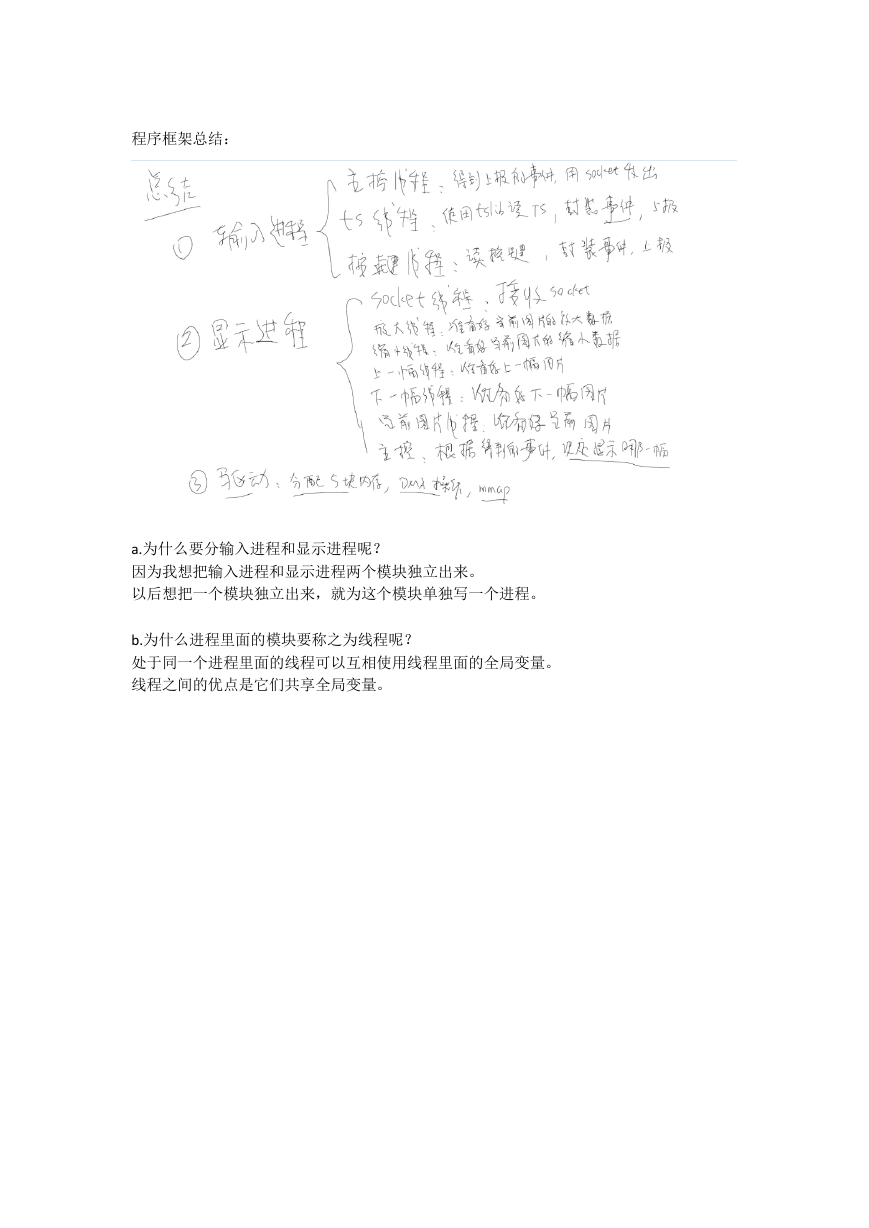 程序框架总结：
总结
① 输入进程
主控线程：得到上报的事件，用 socket 发出
ts 线程：使用tslib读TS，封装事件，上报
按键线程：读按键，封装事件，上报
② 显示进程
socket 线程：接收 socket
放大线程：准备好当前图片的放大数据
缩小线程：准备好当前图片的缩小数据
上一幅线程：准备好上一幅图片
下一幅线程：准备好下一幅图片
当前图片线程：准备好当前图片
主控：根据得到的事件，决定显示哪一幅
③ 驱动：分配5块内存，DMA 操作，mmap
a.为什么要分输入进程和显示进程呢？
因为我想把输入进程和显示进程两个模块独立出来。
以后想把一个模块独立出来，就为这个模块单独写一个进程。
b.为什么进程里面的模块要称之为线程呢？
处于同一个进程里面的线程可以互相使用线程里面的全局变量。
线程之间的优点是它们共享全局变量。